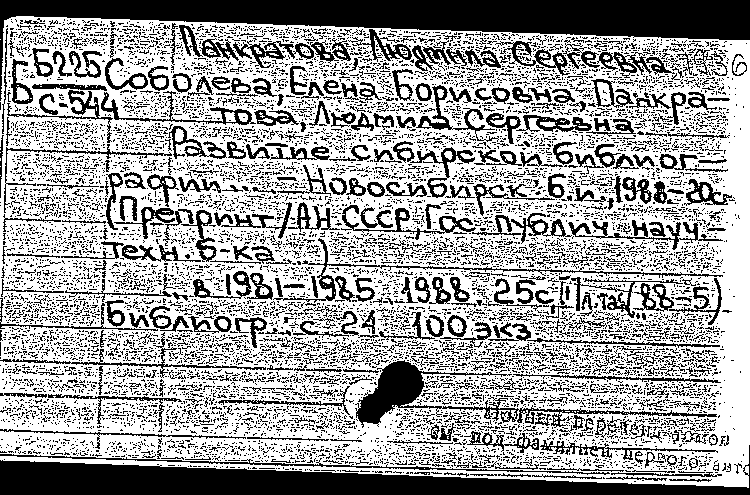 Панкратова, Людмила Сергеевна, 1936
Б Б225 Соболева, Елена Борисовна, Панкра-
С-544 това, Людмила Сергеевна.
Развитие сибирской библиог-
рафии ... - Новосибирск: Б.и., 1988.-20см
(Препринт/АН СССР, Гос. публич. науч.-
техн. б-ка ...)
... в 1981-1985. 1988. 25с, [1]л.таб(88-5)
Библиогр.: с 24. 100 экз.
Полный перечень томов
см. под фамилией первого авто